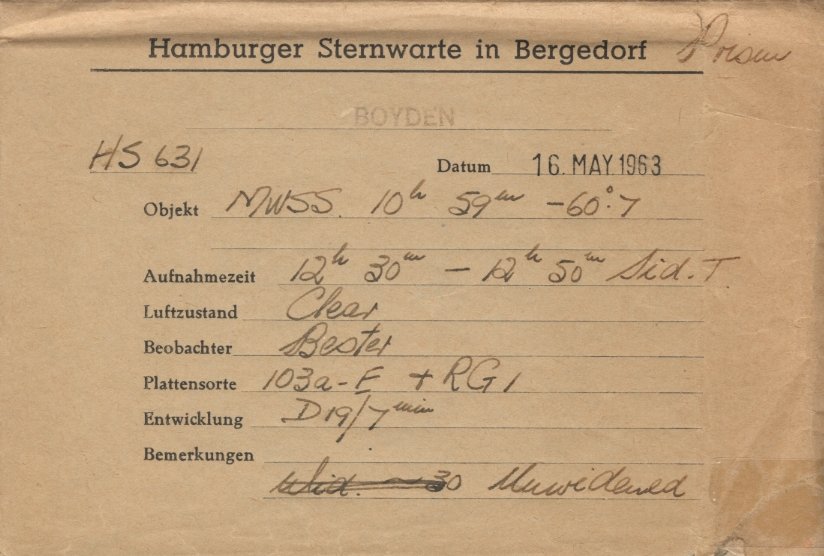 Hamburger Sternwarte in Bergedorf Prism
BOYDEN
HS 631
Datum 16. MAY. 1963
Objekt MWSS. 10h 59m -60°.7
Aufnahmezeit 12h 30m - 12h 50m Sid. T.
Luftzustand Clear
Beobachter Bester
Plattensorte 103a-E + RG1
Entwicklung D19/7min
Bemerkungen
30 Unwidened